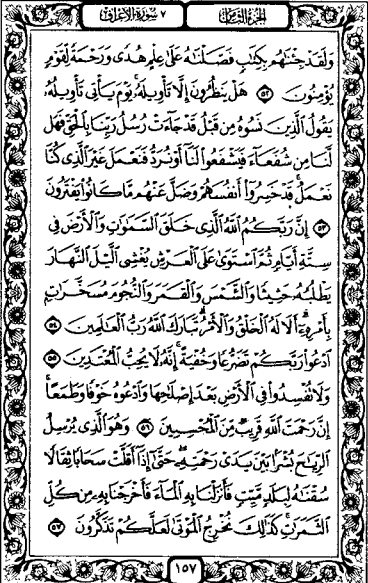 الجزء الثامن
٧ سورة الأعراف
وَلَقَدْ جِئْنَٰهُم بِكِتَٰبٍ فَصَّلْنَٰهُ عَلَىٰ عِلْمٍ هُدًى وَرَحْمَةً لِّقَوْمٍ
يُؤْمِنُونَ ٥٢ هَلْ يَنظُرُونَ إِلَّا تَأْوِيلَهُۥ ۚ يَوْمَ يَأْتِى تَأْوِيلُهُۥ
يَقُولُ ٱلَّذِينَ نَسُوهُ مِن قَبْلُ قَدْ جَآءَتْ رُسُلُ رَبِّنَا بِٱلْحَقِّ فَهَل
لَّنَا مِن شُفَعَآءَ فَيَشْفَعُوا۟ لَنَآ أَوْ نُرَدُّ فَنَعْمَلَ غَيْرَ ٱلَّذِى كُنَّا
نَعْمَلُ ۚ قَدْ خَسِرُوٓا۟ أَنفُسَهُمْ وَضَلَّ عَنْهُم مَّا كَانُوا۟ يَفْتَرُونَ
٥٣ إِنَّ رَبَّكُمُ ٱللَّهُ ٱلَّذِى خَلَقَ ٱلسَّمَٰوَٰتِ وَٱلْأَرْضَ فِى
سِتَّةِ أَيَّامٍ ثُمَّ ٱسْتَوَىٰ عَلَى ٱلْعَرْشِ يُغْشِى ٱلَّيْلَ ٱلنَّهَارَ
يَطْلُبُهُۥ حَثِيثًا وَٱلشَّمْسَ وَٱلْقَمَرَ وَٱلنُّجُومَ مُسَخَّرَٰتٍۭ
بِأَمْرِهِۦٓ ۗ أَلَا لَهُ ٱلْخَلْقُ وَٱلْأَمْرُ ۗ تَبَارَكَ ٱللَّهُ رَبُّ ٱلْعَٰلَمِينَ ٥٤
ٱدْعُوا۟ رَبَّكُمْ تَضَرُّعًا وَخُفْيَةً ۚ إِنَّهُۥ لَا يُحِبُّ ٱلْمُعْتَدِينَ ٥٥
وَلَا تُفْسِدُوا۟ فِى ٱلْأَرْضِ بَعْدَ إِصْلَٰحِهَا وَٱدْعُوهُ خَوْفًا وَطَمَعًا ۚ
إِنَّ رَحْمَتَ ٱللَّهِ قَرِيبٌ مِّنَ ٱلْمُحْسِنِينَ ٥٦ وَهُوَ ٱلَّذِى يُرْسِلُ
ٱلرِّيَٰحَ بُشْرًۢا بَيْنَ يَدَىْ رَحْمَتِهِۦ ۖ حَتَّىٰٓ إِذَآ أَقَلَّتْ سَحَابًا ثِقَالًا
سُقْنَٰهُ لِبَلَدٍ مَّيِّتٍ فَأَنزَلْنَا بِهِ ٱلْمَآءَ فَأَخْرَجْنَا بِهِۦ مِن كُلِّ
ٱلثَّمَرَٰتِ ۚ كَذَٰلِكَ نُخْرِجُ ٱلْمَوْتَىٰ لَعَلَّكُمْ تَذَكَّرُونَ ٥٧
١٥٧